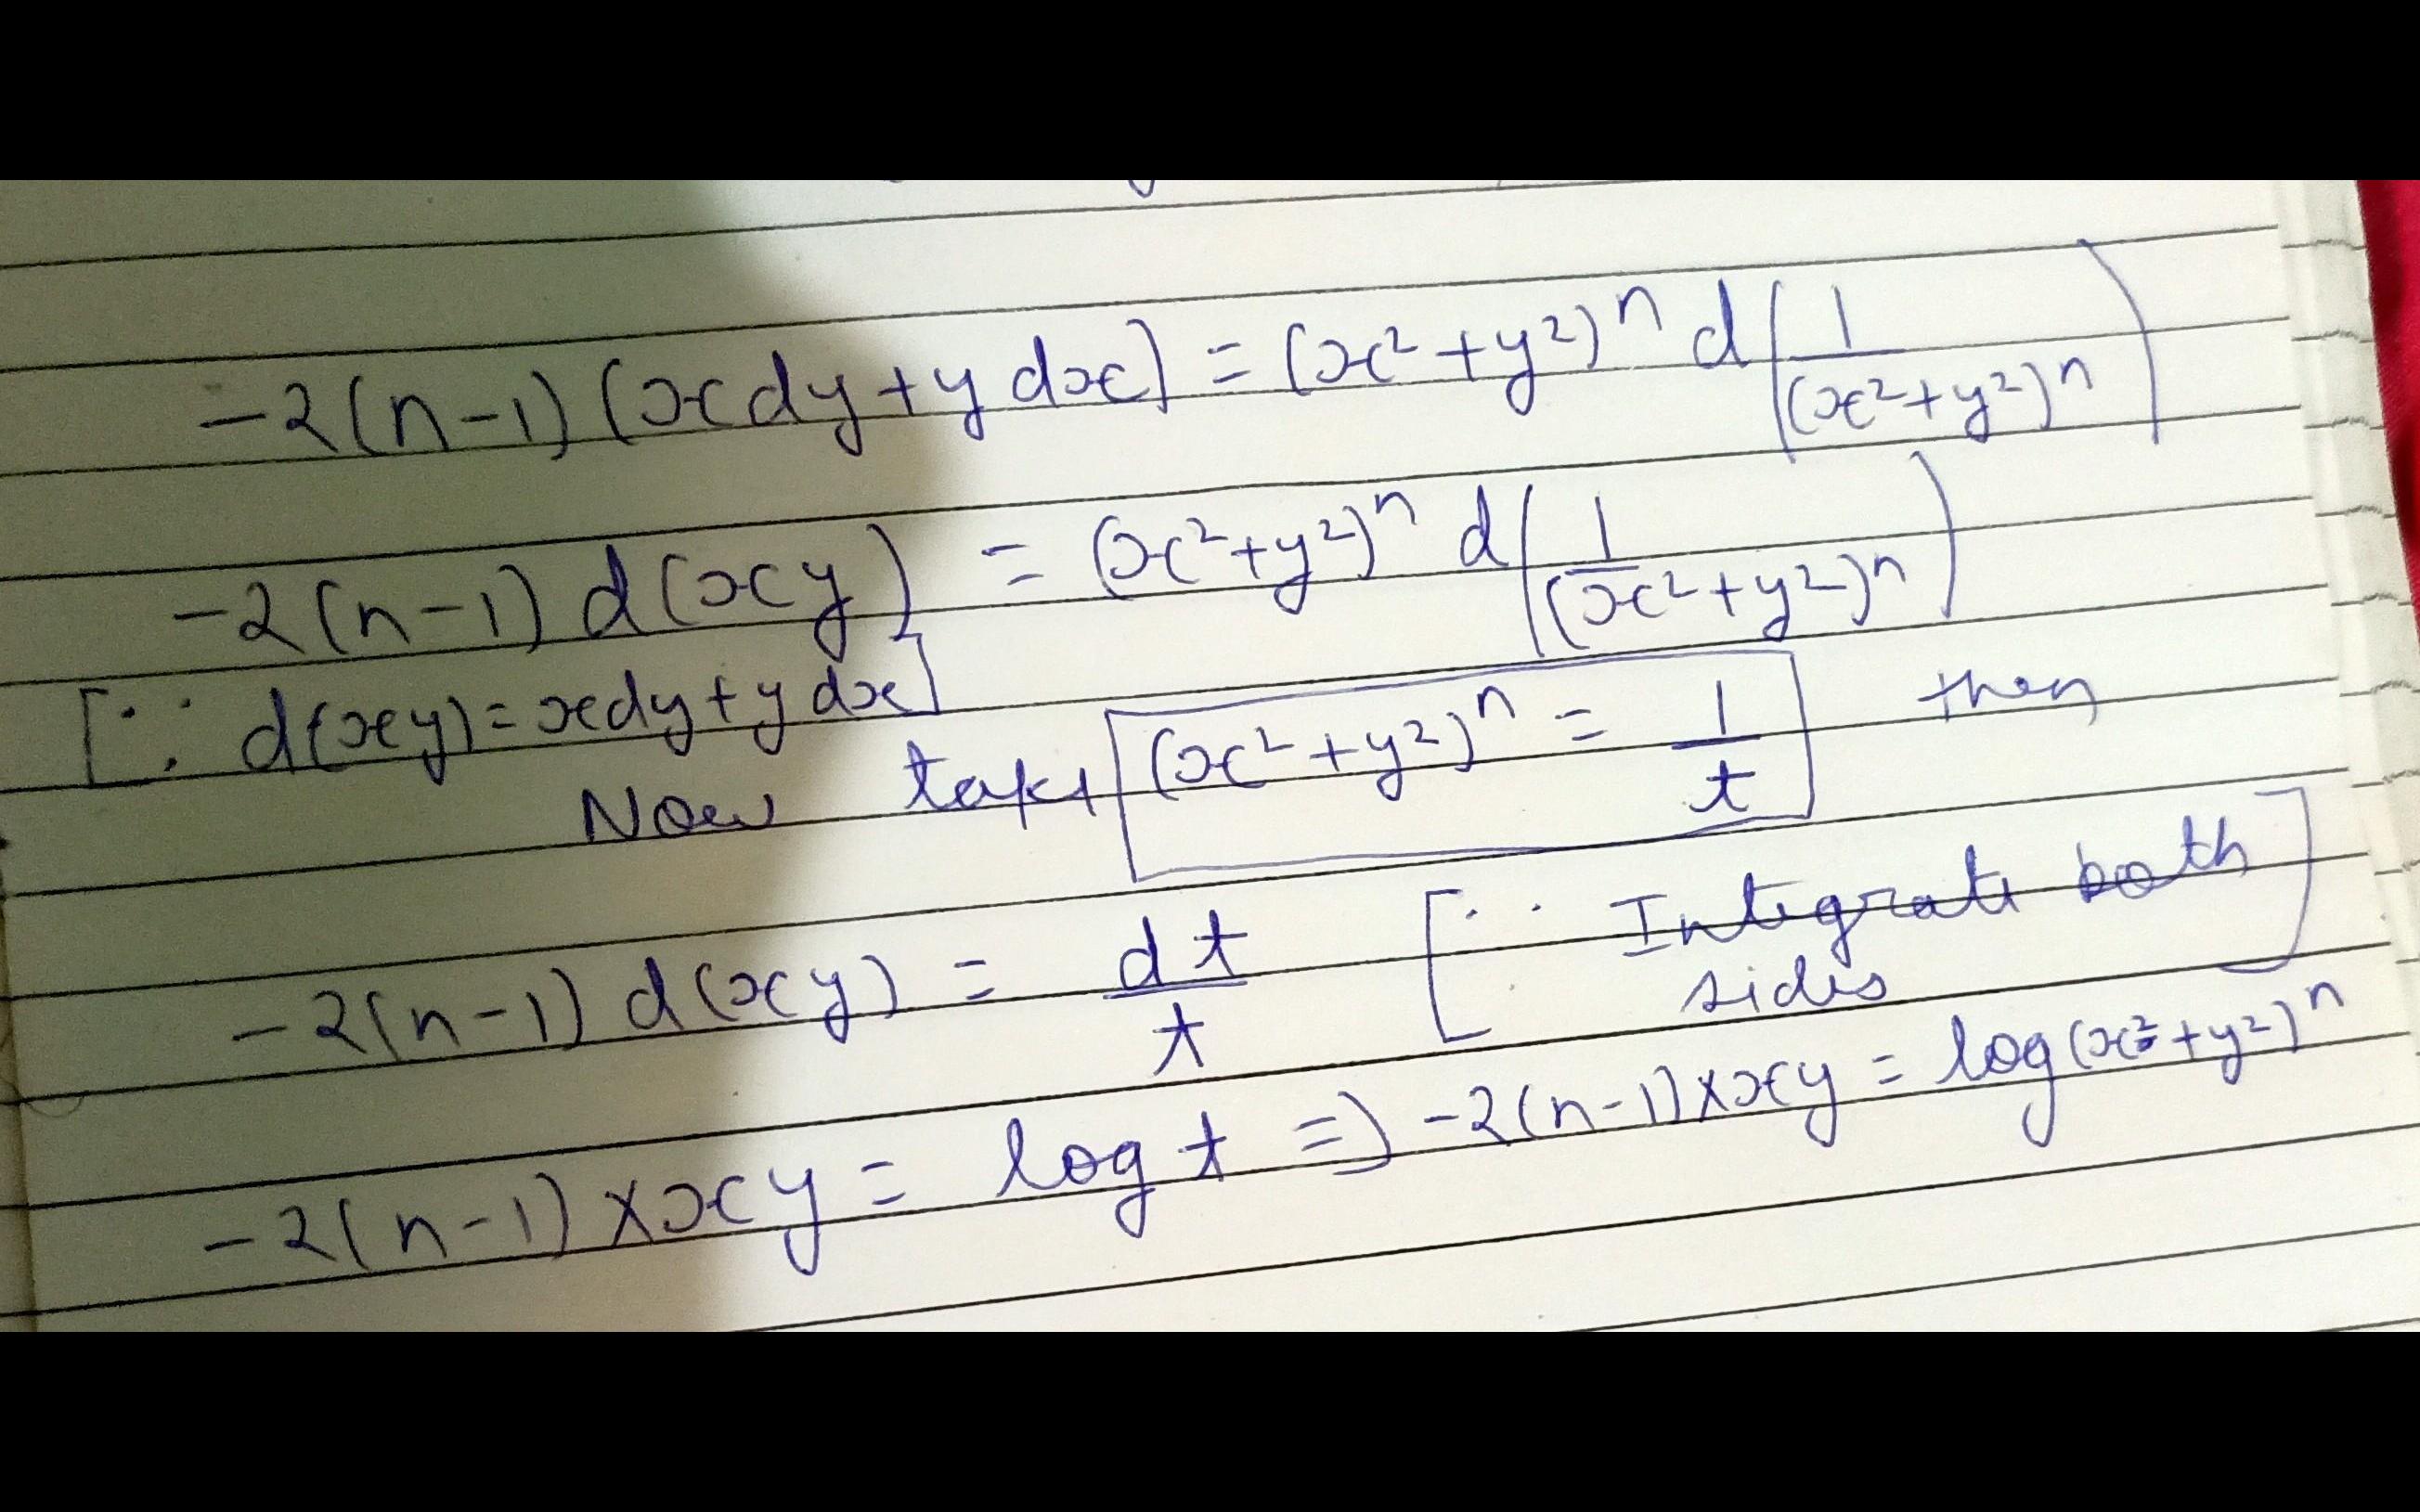 -2(n-1)(xdy+ydx) = (x²+y²)ⁿ d(1/(x²+y²)ⁿ)
-2(n-1) d(xy) = (x²+y²)ⁿ d(1/(x²+y²)ⁿ)
[∵ d(xy)=xdy+ydx]
Now take (x²+y²)ⁿ = 1/t then
-2(n-1) d(xy) = dt/t [∵ Integrate both sides]
-2(n-1)×xy = log t ⇒ -2(n-1)×xy = log(x²+y²)ⁿ